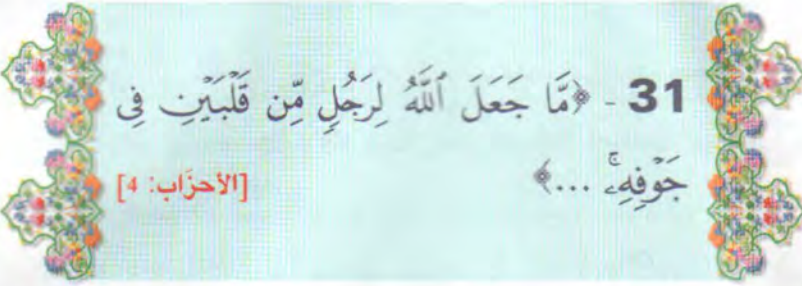 31 - ﴿مَّا جَعَلَ ٱللَّهُ لِرَجُلٍ مِّن قَلْبَيْنِ فِى
جَوْفِهِۦۚ ...﴾ [الأحزَاب: 4]